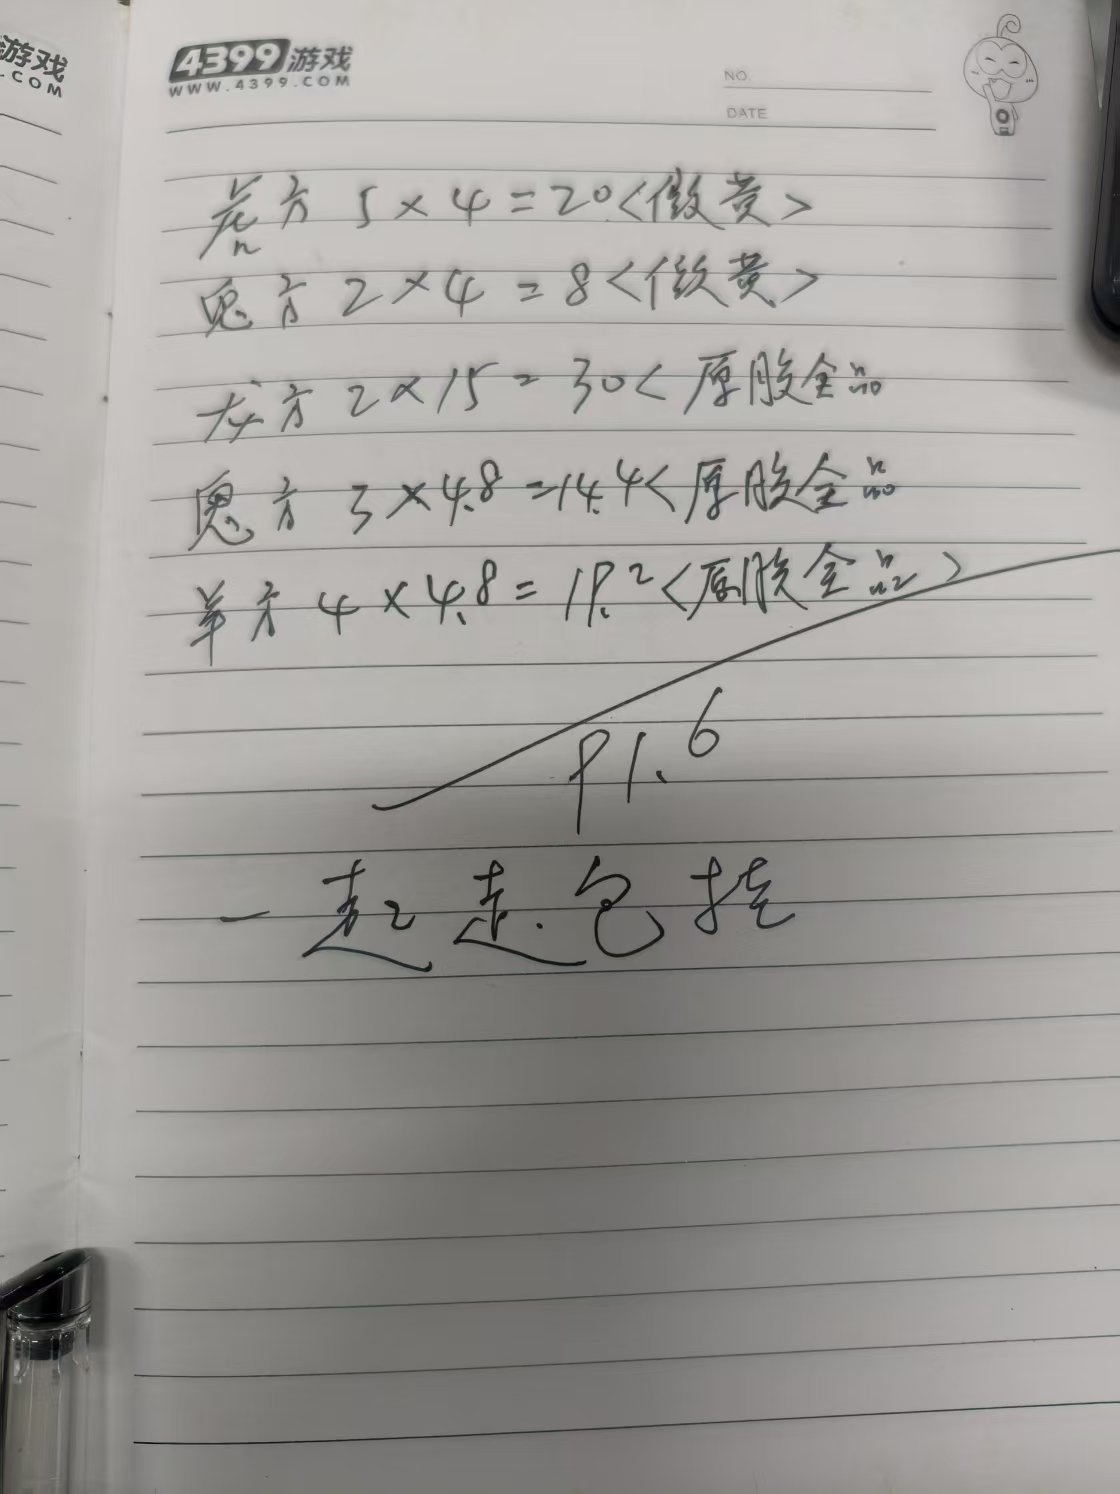 游戏
.COM
4399游戏
WWW.4399.COM
NO.
DATE
方 5×4=20<微黄>
鬼方 2×4=8<微黄>
龙方 2×15=30<原胶全品
鬼方 3×4.8=14.4<原胶全品
羊方 4×4.8=19.2<原胶全品>
91.6
一起走.包挂